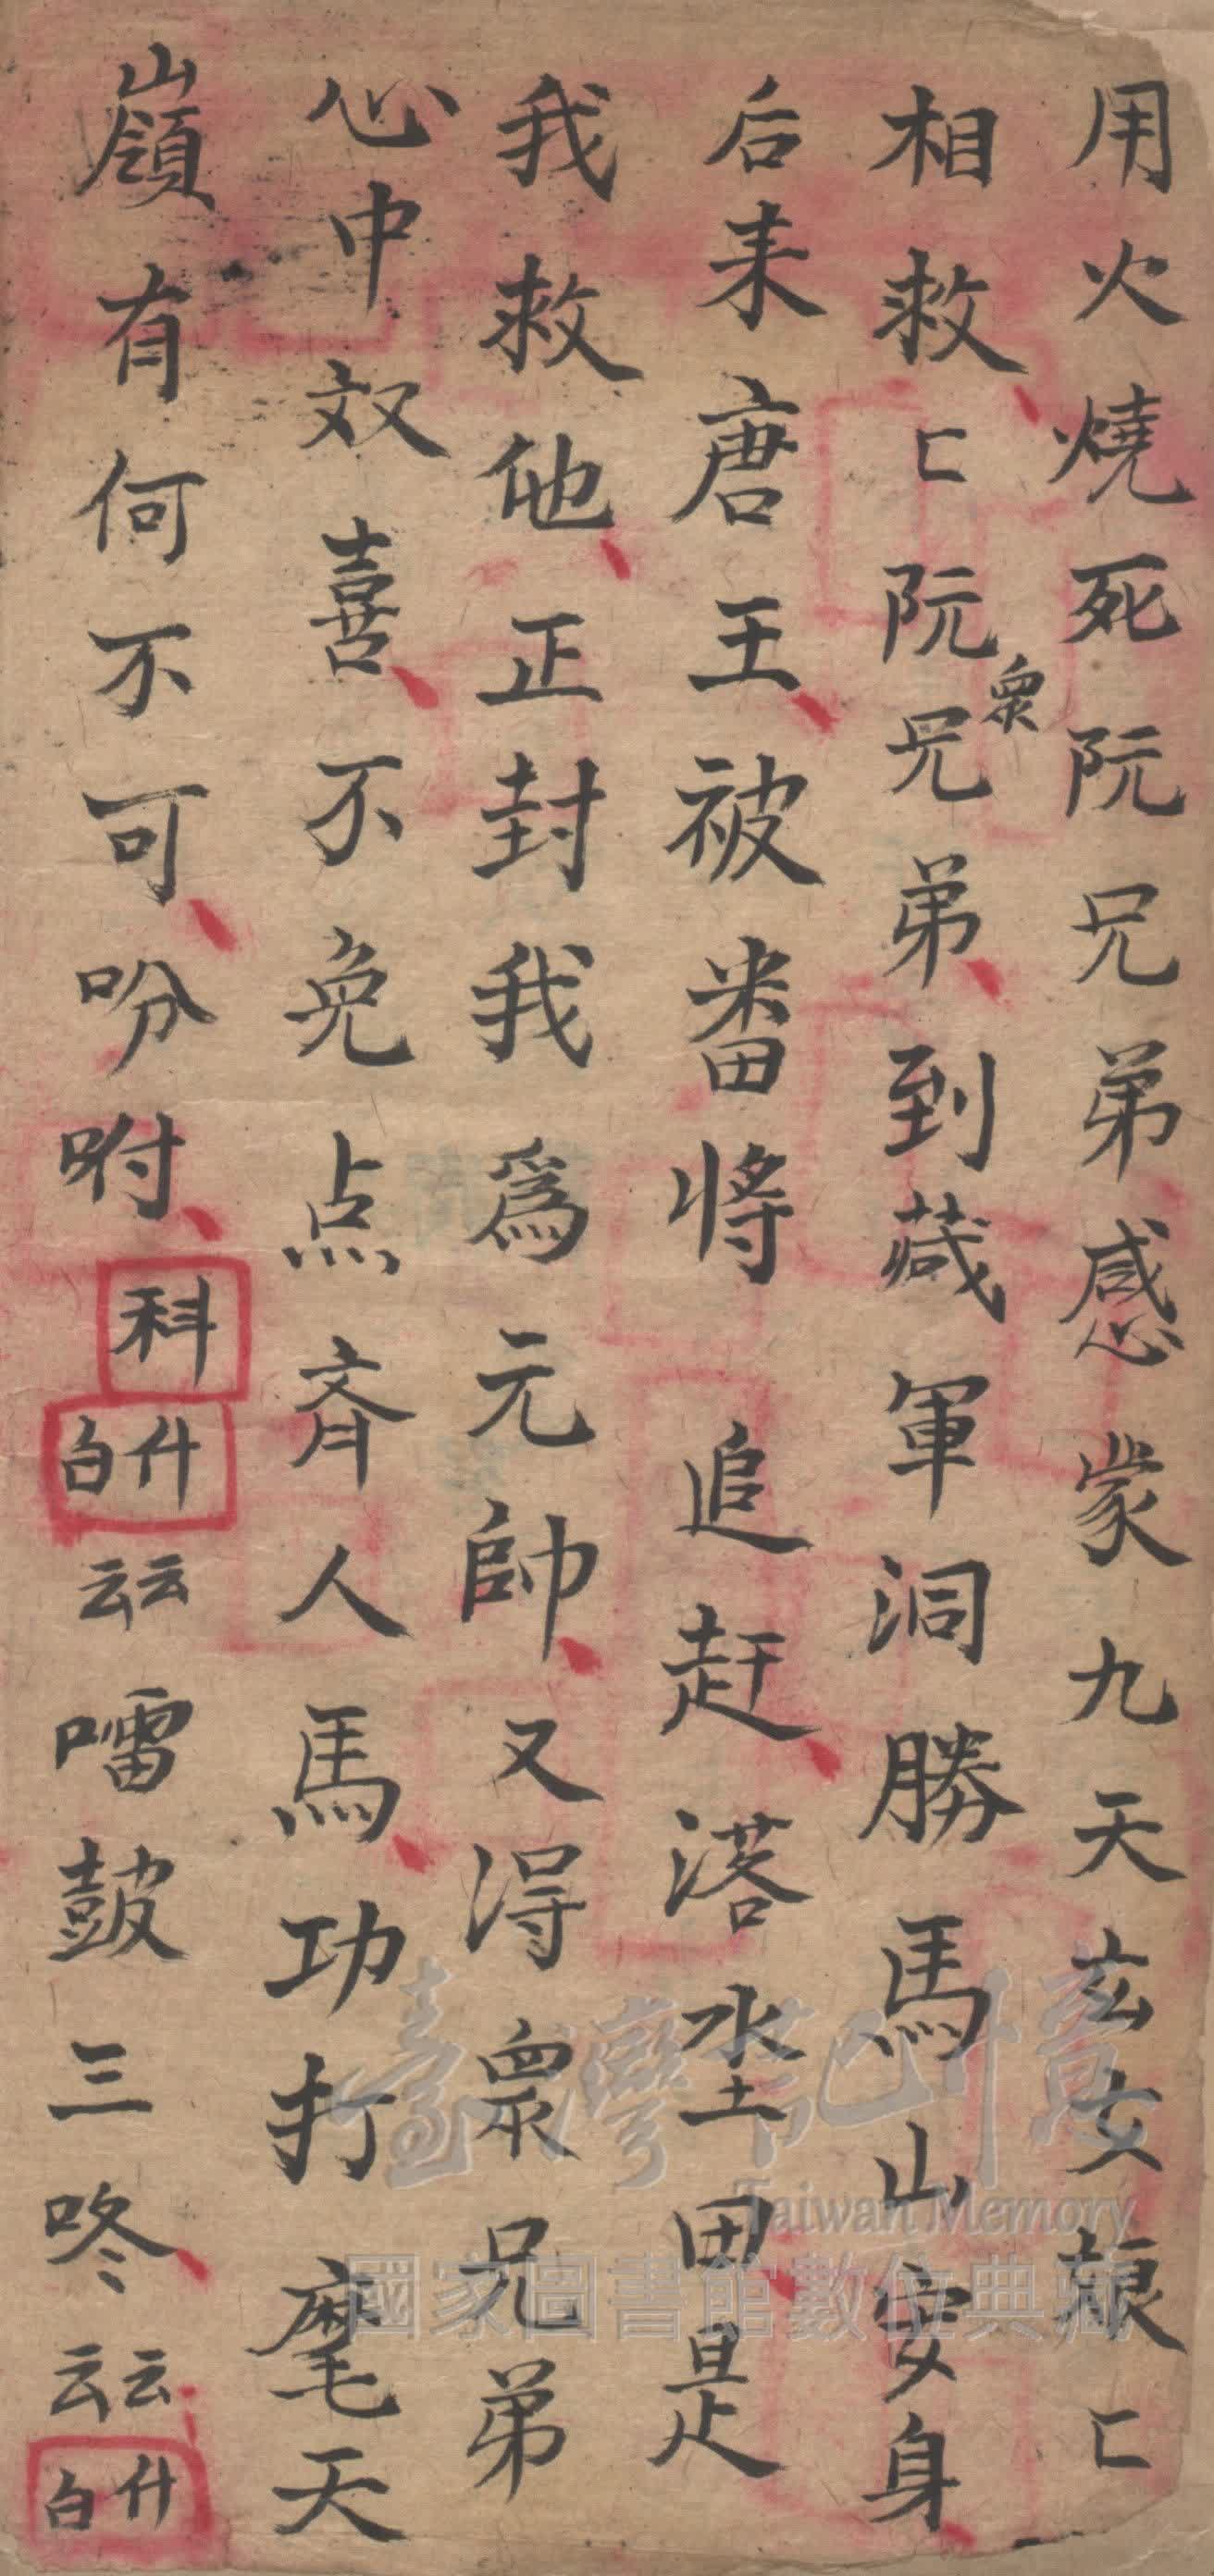 用火燒死阮兄弟感蒙九天玄女娘匸
相救匸阮眾兄弟到藏軍洞勝馬山安身
后来唐王被畨将追赶落坔田是
我救他正封我為元帥又得眾兄弟
心中奴喜不免点齐人馬功打麾天
嶺有何不可吩咐科白介云云嚅鼓三咚云云白介
臺灣記憶
Taiwan Memory
國家圖書館數位典藏